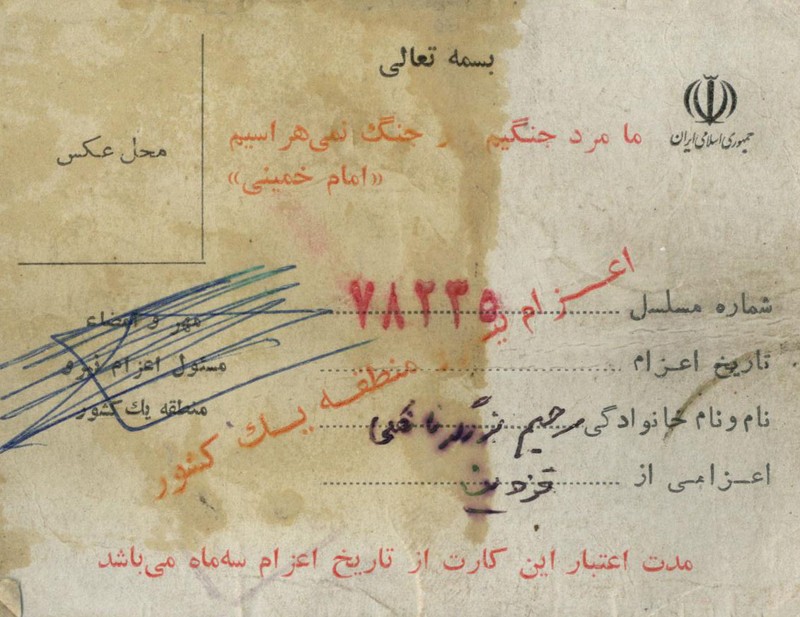 بسمه تعالی
جمهوری اسلامی ایران
ما مرد جنگیم و از جنگ نمی‌هراسیم
«امام خمینی»
محل عکس
شماره مسلسل ۷۸۲۳۵
تاریخ اعـزام
نام و نام خانوادگی رحیم
اعـزامـی از قزوین
مهر و امضاء
مسئول اعزام نیرو
منطقه یك کشور
اعـزام نیرو منطقـه یـك کشور
مدت اعتبار این کارت از تاریخ اعزام سه‌ماه می‌باشد